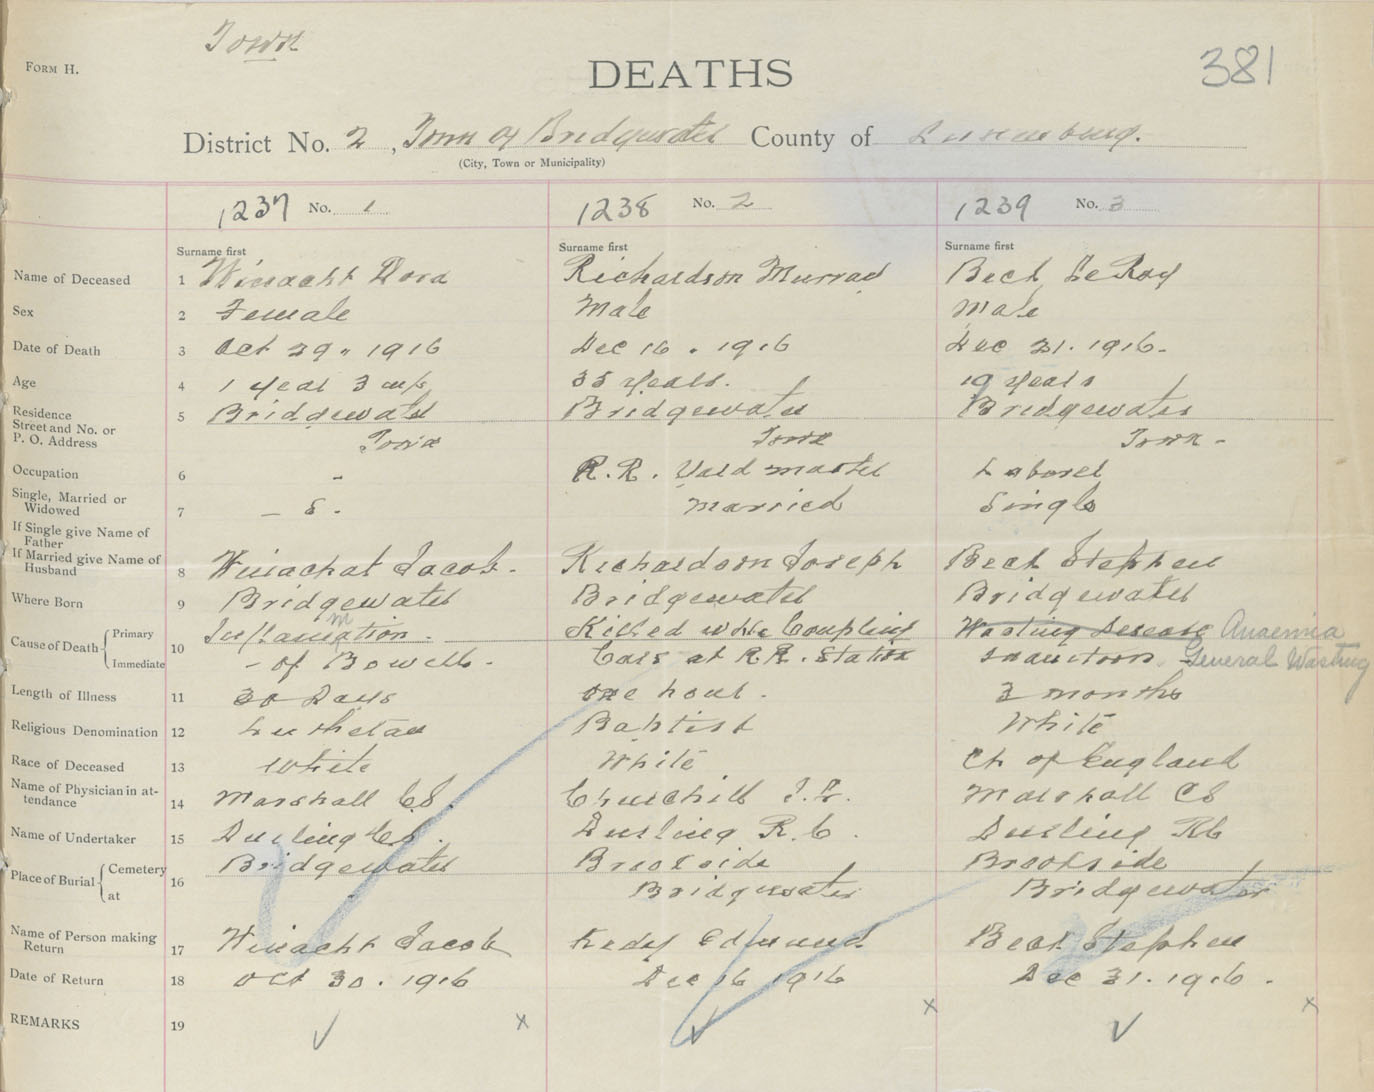 Town
FORM H.
DEATHS
381
District No. 2, Town of Bridgewater County of Lunenburg.
(City, Town or Municipality)
1237 No. 1 1238 No. 2 1239 No. 3
Surname first Surname first Surname first
Name of Deceased 1 Winacht Dora Richardson Murray Beck LeRoy
Sex 2 Female Male Male
Date of Death 3 Oct 29, 1916 Dec 16. 1916 Dec 31. 1916.
Age 4 1 year 3 35 years. 19 years
Residence 5 Bridgewater Bridgewater Bridgewater
Street and No. or
P. O. Address Town Town Town -
Occupation 6 - R.R. Yard master Laborer
Single, Married or
Widowed 7 - S. Married Single
If Single give Name of
Father
If Married give Name of
Husband 8 Winachat Jacob. Richardson Joseph Beck Stephen
Where Born 9 Bridgewater Bridgewater Bridgewater
Cause of Death { Primary 10 Inflammation. Killed while Coupling Wasting Disease Anaemia
Immediate - of Bowells. Cars at R.R. Station General Wasting
Length of Illness 11 30 Days one hour. 3 months
Religious Denomination 12 Lutheran Baptist White
Race of Deceased 13 White White Ch of England
Name of Physician in at-
tendance 14 Marshall CS. Churchill Marshall CS
Name of Undertaker 15 Dusling Dusling R.C. Dusling RC
Place of Burial { Cemetery 16 Bridgewater Brookside Brookside
at Bridgewater Bridgewater
Name of Person making
Return 17 Winacht Jacob Kedy Edmund Beck Stephen
Date of Return 18 Oct 30. 1916 Dec 16 1916 Dec 31. 1916.
REMARKS 19 ✓ x ✓ x ✓ x